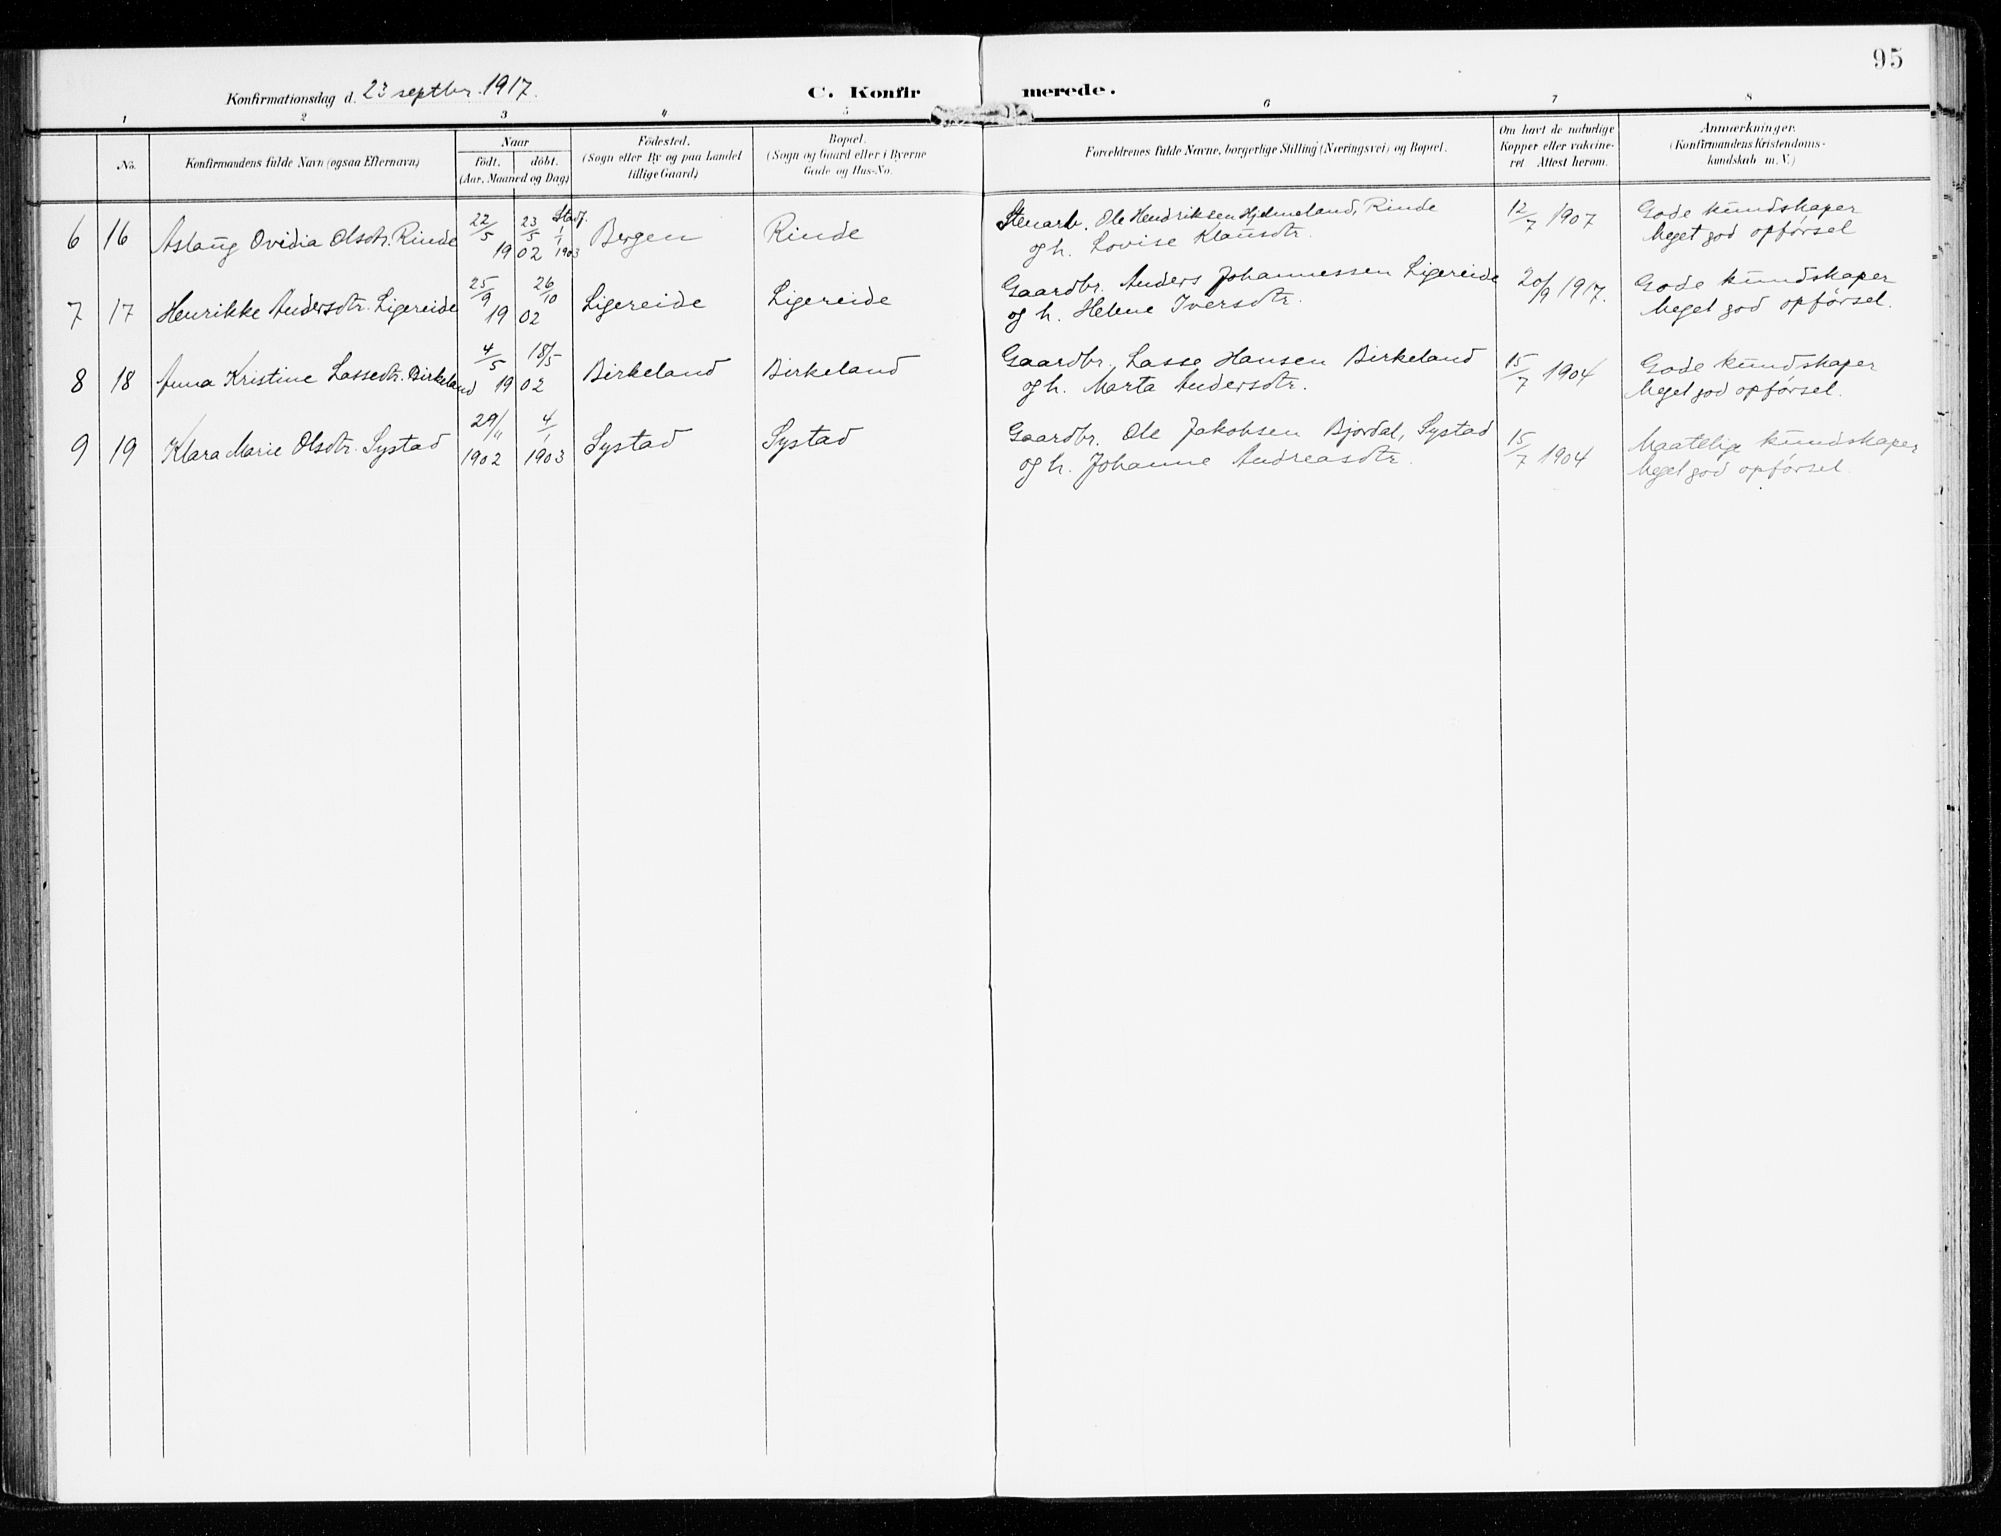 95
Konfirmationsdag d. 23 septbr. 1917.
C. Konfirmerede.
1 2 3 4 5 6 7 8
No.
Konfirmandens fulde Navn (ogsaa Efternavn)
Naar
født. døbt.
(Aar, Maaned og Dag)
Fødested.
(Sogn eller By og paa Landet
tillige Gaard)
Bopæl.
(Sogn og Gaard eller i Byerne
Gade og Hus-No.
Forældrenes fulde Navne, borgerlige Stilling (Næringsvei) og Bopæl.
Om havt de naturlige
Kopper eller vaccine-
ret Attest herom.
Anmærkninger.
(Konfirmandens Kristendoms-
kundskab m. V.)
6 16 Aslaug Ovidia Olsdtr. Rinde 22/5 1902 23/5 Stadf. 1/1 1903 Bergen Rinde Stenarb. Ole Hendriksen Hjelmeland, Rinde
og h. Lovise Klausdtr. 12/7 1907 Gode kundskaper
Meget god opførsel
7 17 Henrikke Andersdtr. Ligereide 25/9 26/10 1902 Ligereide Ligereide Gaardbr. Anders Johannessen Ligereide
og h. Helene Iversdtr. 20/9 1917. Gode kundskaper
Meget god opførsel.
8 18 Anna Kristine Lassedtr. Birkeland 4/5 18/5 1902 Birkeland Birkeland Gaardbr. Lasse Hansen Birkeland
og h. Marta Andersdtr. 15/7 1904 Gode kundskaper
Meget god opførsel.
9 19 Klara Marie Olsdtr. Systad 29/11 1902 4/1 1903 Systad Systad Gaardbr. Ole Jakobsen Bjordal, Systad
og h. Johanne Andreasdtr. 15/7 1904 Maatelige kundskaper
Meget god opførsel.